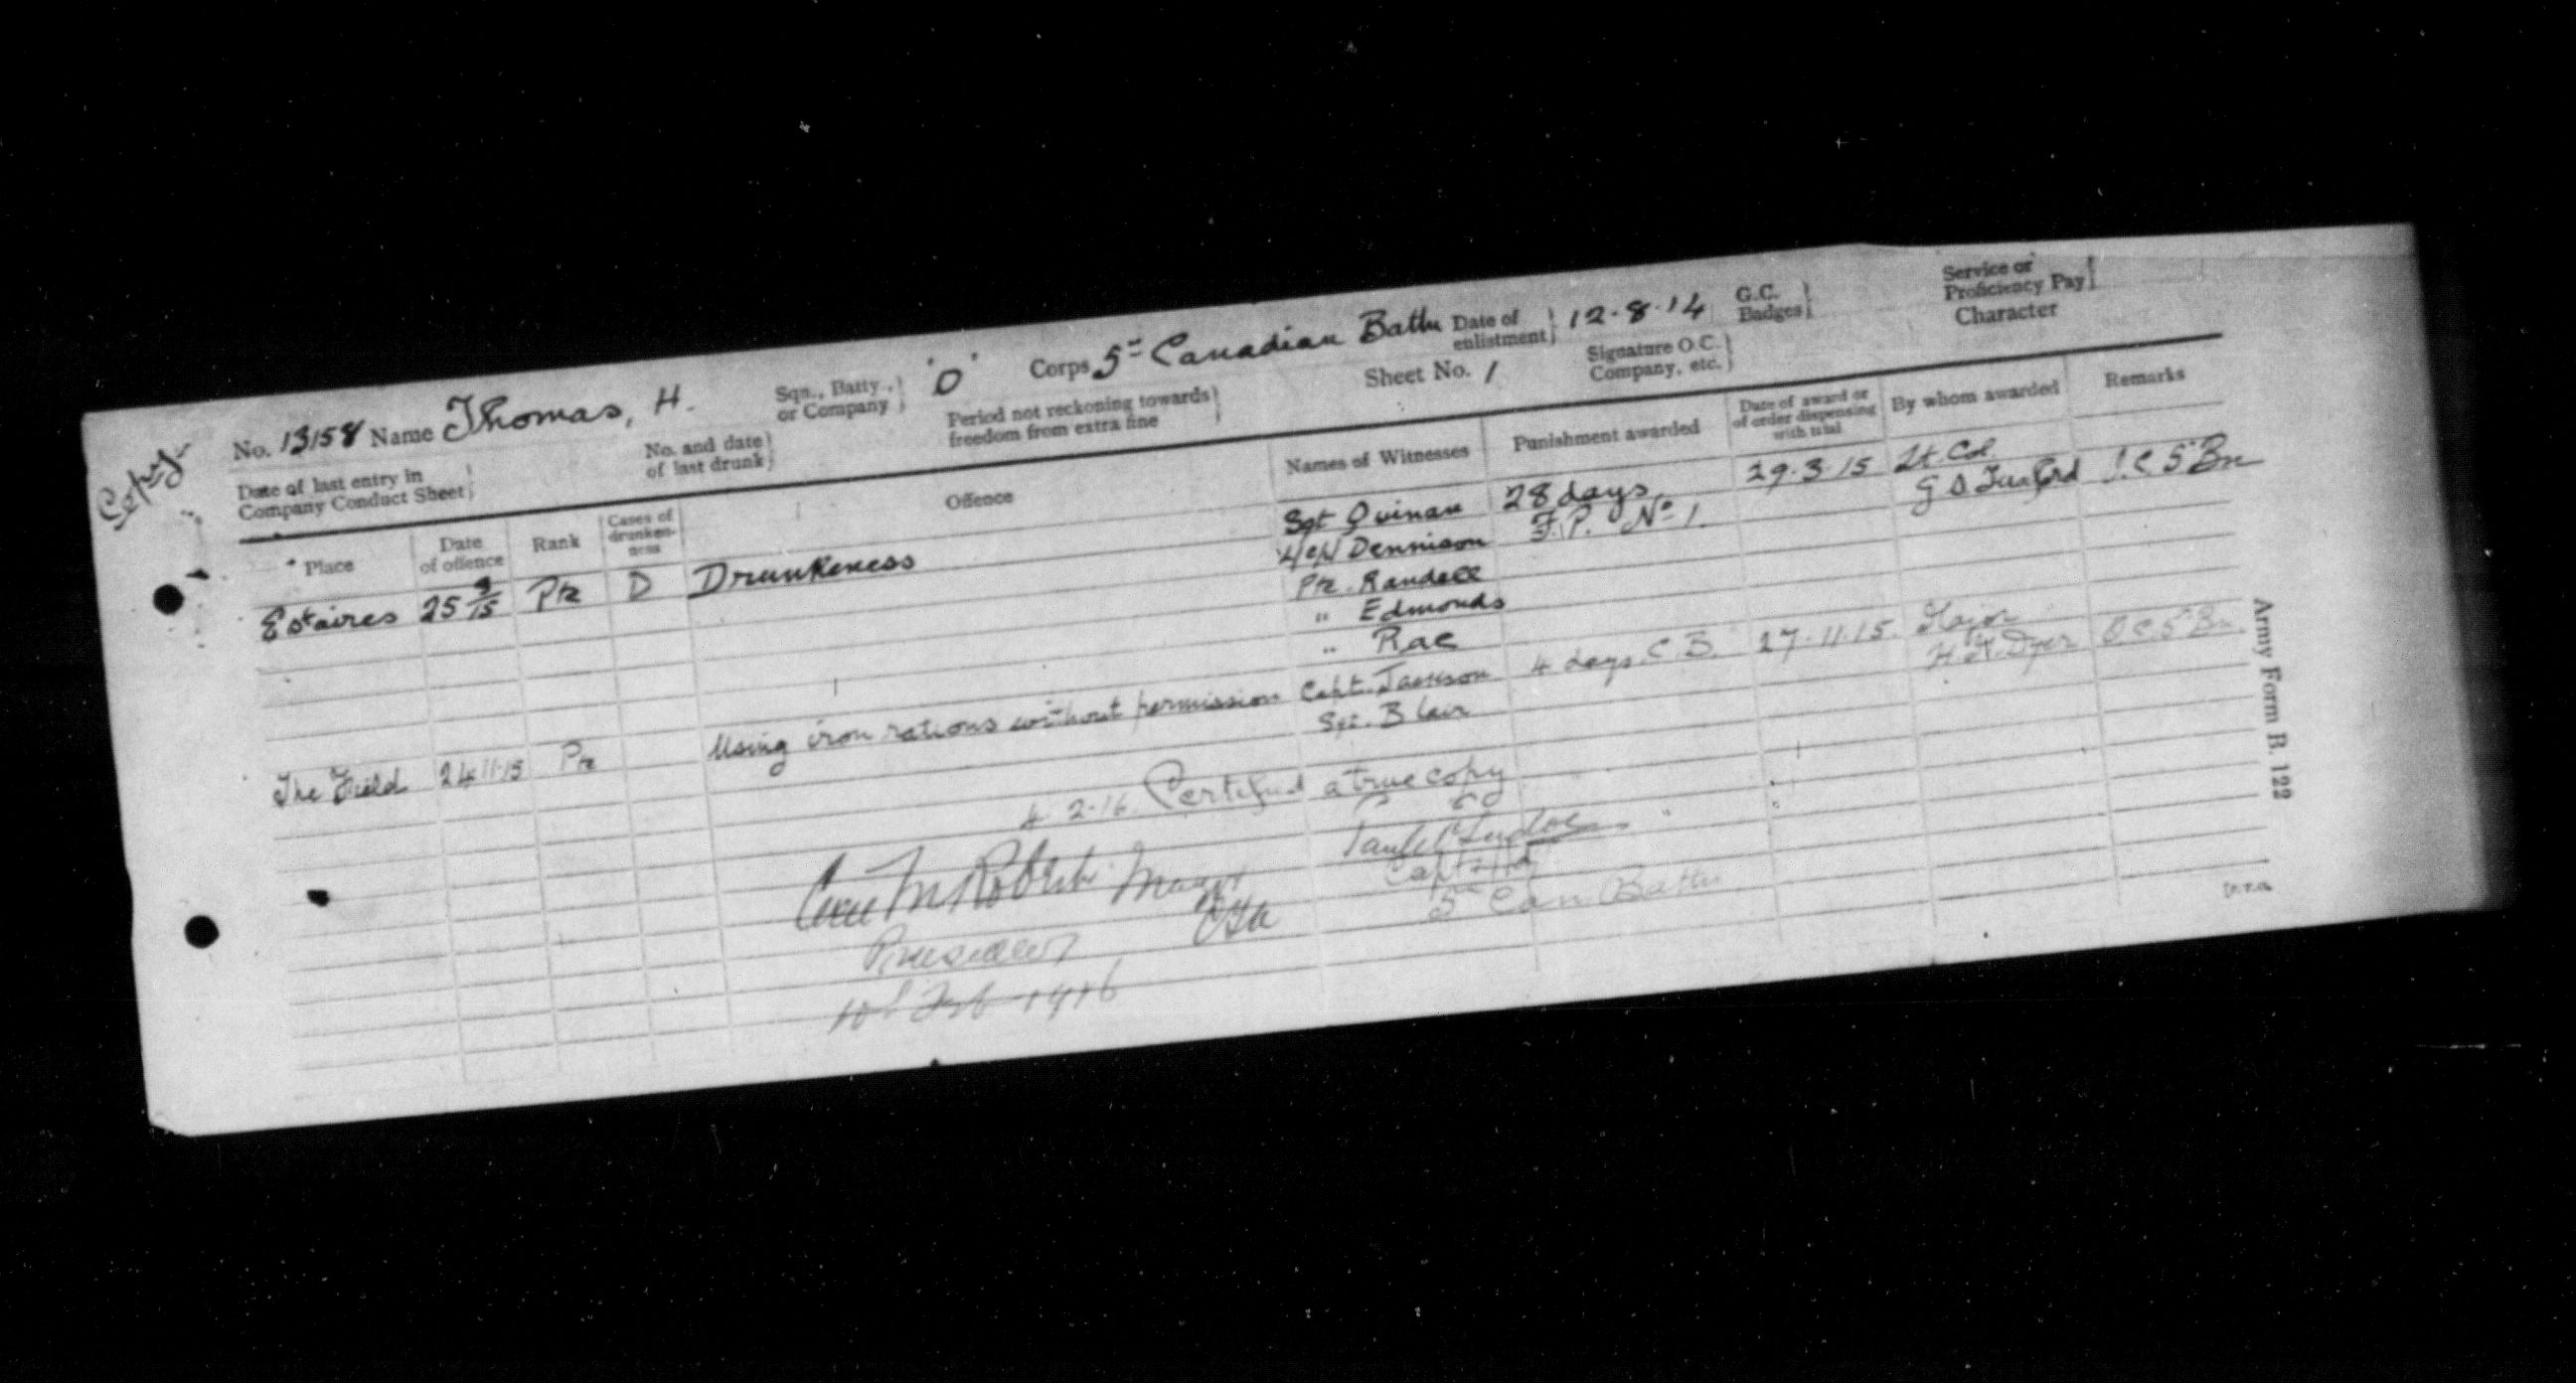 Copy
No. 13158 Name Thomas, H. Sqn., Batty., or Company } 'D' Corps 5th Canadian Battn Date of enlistment } 12.8.14 G.C. Badges } Service or Proficiency Pay }
Date of last entry in Company Conduct Sheet } No. and date of last drunk } Period not reckoning towards freedom from extra fine } Sheet No. 1 Signature O.C. Company, etc. } Character
Place Date of offence Rank Cases of drunken-ness Offence Names of Witnesses Punishment awarded Date of award or of order dispensing with trial By whom awarded Remarks
Estaires 25 3/15 Pte D Drunkeness Sgt Quinan 28 days 29.3.15 Lt. Col.
L/Cpl Dennison F.P. No 1. G S Tuxford 5th Bn
Pte. Randell
" Edmonds
" Rae
The Field 24.11.15 Pte Using iron rations without permission Capt. Jackson 4 days C B. 27.11.15. Major
Sgt. Blair H. M. Dyer O.C. 5th Bn
4.2.16. Certified a true copy
Major Capt
President 5th Can Battn
10th Feb 1916
Army Form B. 122
P.T.O.